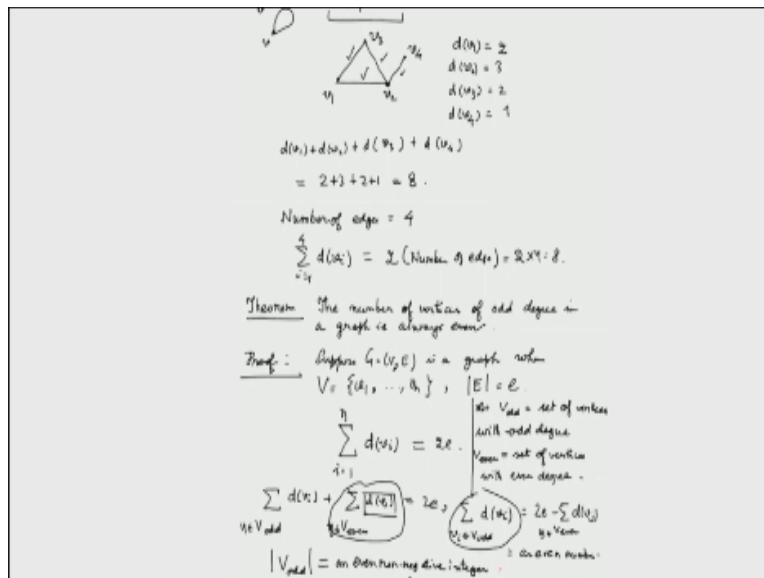 v
v3
v4
v1
v2
d(v1) = 2
d(v2) = 3
d(v3) = 2
d(v4) = 1
d(v1) + d(v2) + d(v3) + d(v4)
= 2+3+2+1 = 8.
Number of edges = 4
4
∑ d(vi) = 2 (Number of edges) = 2×4 = 8.
i=1
Theorem The number of vertices of odd degree in
a graph is always even.
Proof : Suppose G=(V,E) is a graph when
V = {v1, ..., vn}, |E| = e.
n
∑ d(vi) = 2e.
i=1
Vodd = set of vertices
with odd degree
Veven = set of vertices
with even degree.
∑ d(vi) + ∑ d(vi) = 2e, ∑ d(vi) = 2e - ∑ d(vi)
vi∈Vodd vi∈Veven vi∈Vodd vi∈Veven
= an even number.
|Vodd| = an even non-negative integer